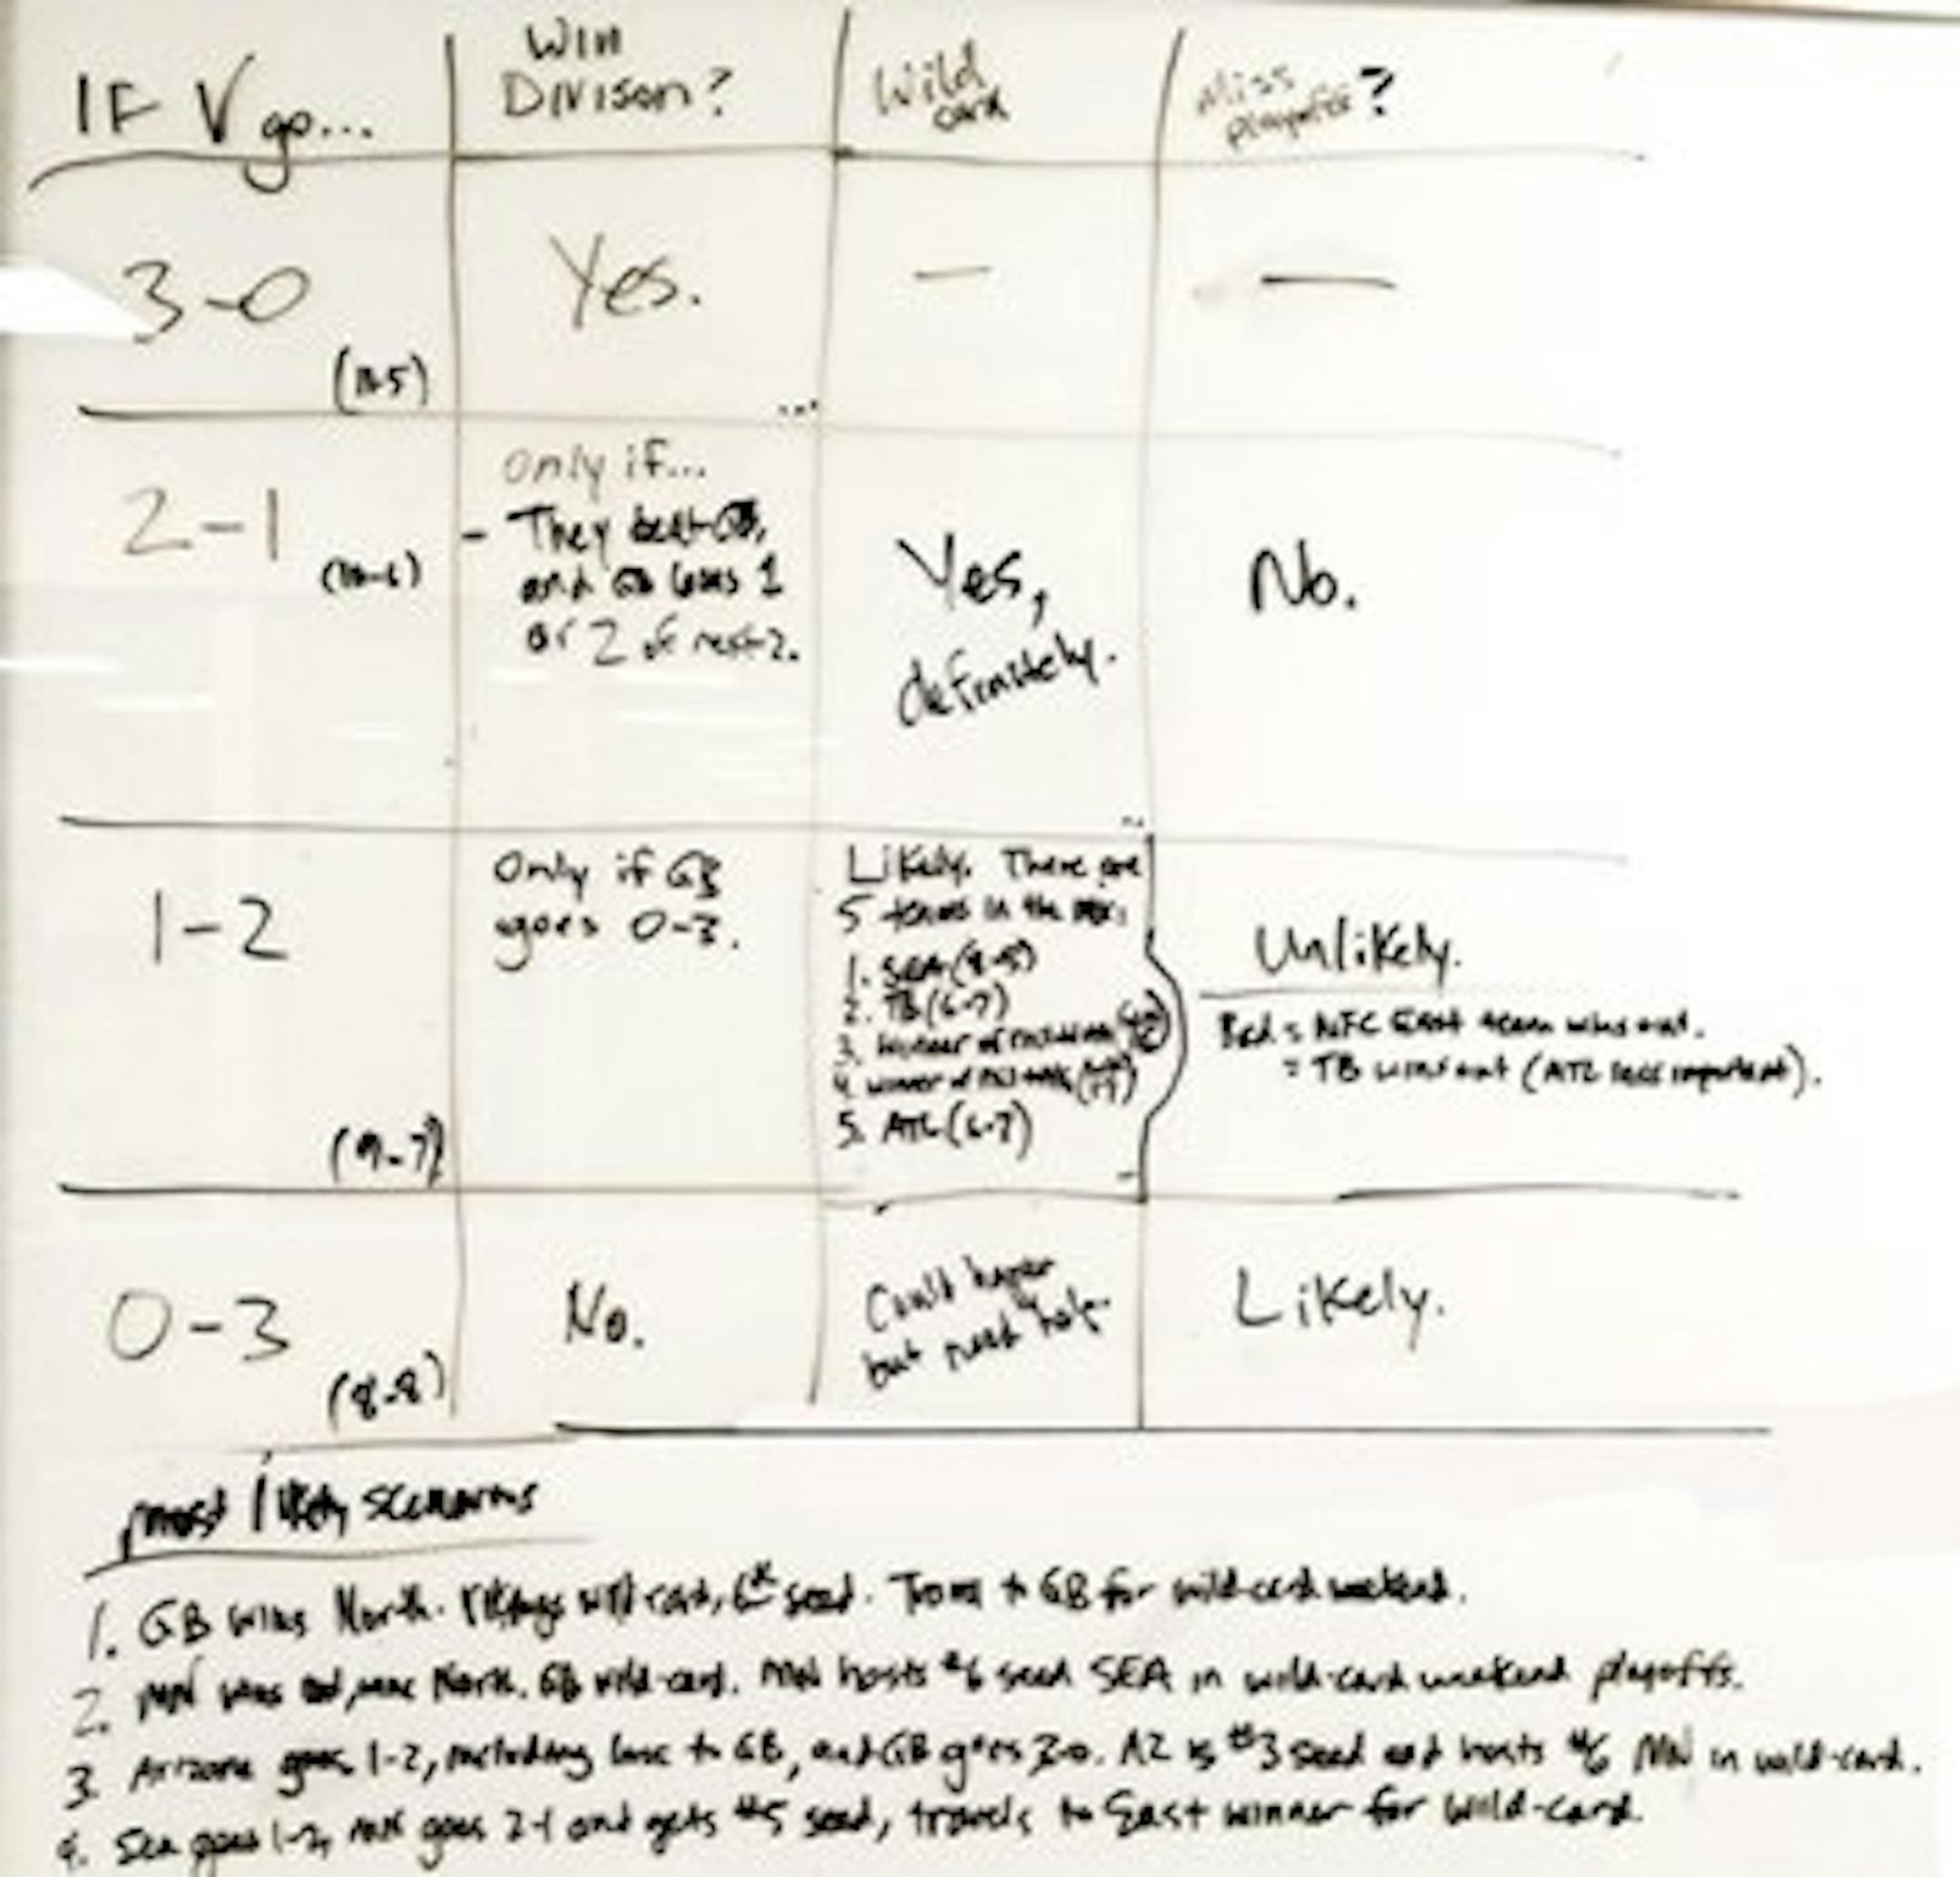 IF V go...
Win
Divison?
Wild
card
Miss
playoffs?
3-0
(11-5)
Yes.
—
—
2-1
(10-6)
only if...
- They beat GB,
and GB loses 1
or 2 of rest 2.
Yes,
definitely.
No.
1-2
(9-7)
Only if GB
goes 0-3.
Likely. There are
5 teams in the mix:
1. SEA (8-5)
2. TB (6-7)
3. Winner of
4. winner of
5. ATL (6-7)
Unlikely.
Bad = NFC East team wins out.
= TB wins out (ATL less important).
0-3
(8-8)
No.
Could happen
but need help.
Likely.
most likely scenarios
1. GB wins North. Vikings wild-card, 6th seed. Travel to GB for wild-card weekend.
2. MN wins out, wins North. GB wild-card. MN hosts #6 seed SEA in wild-card weekend playoffs.
3. Arizona goes 1-2, including loss to GB, and GB goes 3-0. AZ is #3 seed and hosts #6 MN in wild-card.
4. Sea goes 1-2, MN goes 2-1 and gets #5 seed, travels to East winner for wild-card.